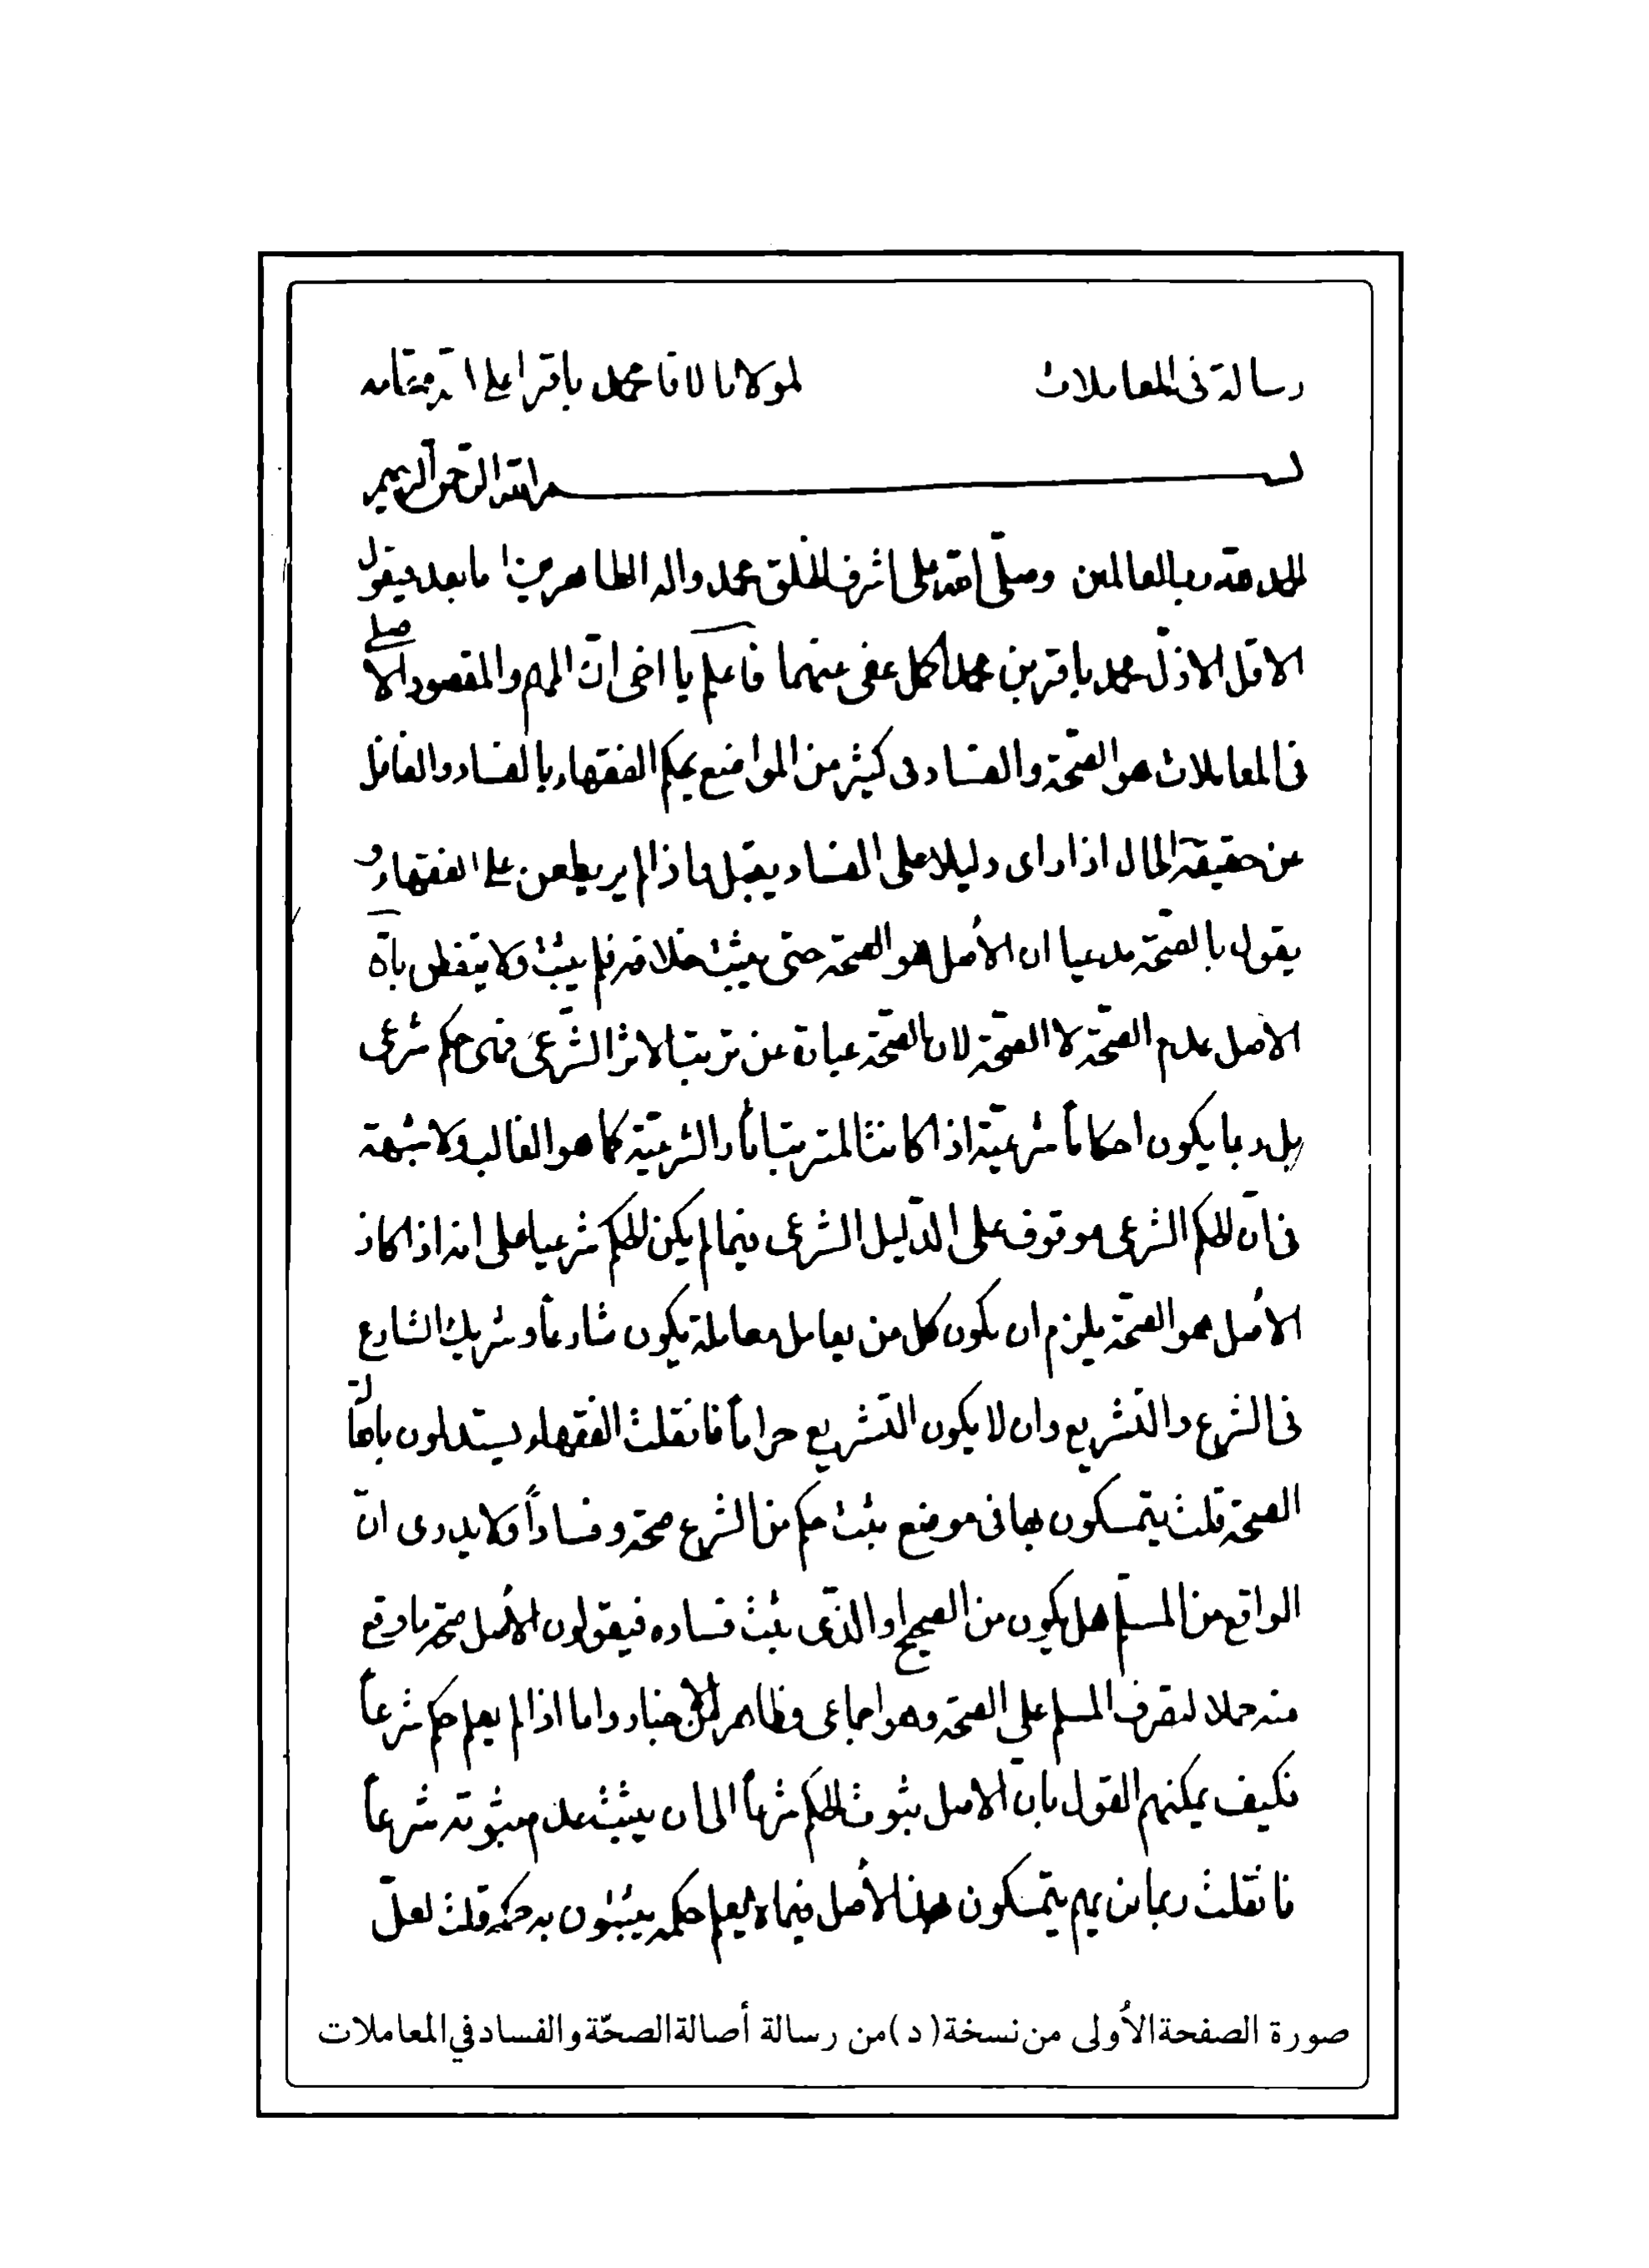 رسالة فى المعاملات لمولانا الاقا محمد باقر اعلى الله مقامه
بسم الله الرحمن الرحيم
الحمد لله رب العالمين وصلّى الله على اشرف الخلق محمد واله الطاهرين اما بعد فيقول
الاقل الاذلّ محمد باقر بن محمد اكمل عفى عنهما فاعلم يا اخى انّ المهم والمقصود الاصلى
فى المعاملات هو الصّحّة والفساد فى كثير من المواضع يحكم الفقهاء بالفساد والغافل
عن حقيقة الحال اذا راى دليلا على الفساد يقبل واذا لم ير يطعن على الفقهاء و
يقول بالصّحّة مدعيا ان الأصل هو الصحّة حتى يثبت خلافه فلم يثبت ولا يتفطن بانّه
الأصل عدم الصّحّة لا الصّحّة لان الصّحّة عبارة عن ترتب الاثر الشّرعىّ فهى حكم شرعى
بل ربما يكون احكاماً شرعيّة اذا كانت المترتب اثار الشرعيّة كما هو الغالب ولا شبهة
فى انّ الحكم الشرعى موقوف على الدّليل الشرعى فيما لم يكن الحكم شرعيا على انه اذا كان
الأصل هو الصحّة يلزم ان يكون كل من يعامل معاملة يكون شارعاً وشريك الشارع
فى الشرع والتشريع وان لا يكون التشريع حراماً فان قلت الفقهاء يستدلون باصالة
الصحة قلت يتمسكون بها فى موضع يثبت حكم من الشرع صحة وفساداً ولا يدرى انّ
الواقع من المسلم هل يكون من الصحيح او الذّى يثبت فساده فيقولون الأصل صحة ما وقع
منه حملا لتصرف المسلم على الصحة وهو اجماعى وظاهر من الاخبار واما اذا لم يعلم حكم شرعاً
فكيف يمكنهم القول بانّ الاصل ثبوت الحكم شرعاً الى ان يثبت عدم ثبوته شرعاً
فان قلت ربما نريهم يتمسكون بهذا الأصل فيما لم يعلم حكمه يثبتون به حكمه قلت لعلّ
صورة الصفحة الأولى من نسخة (د) من رسالة أصالة الصحّة والفساد في المعاملات